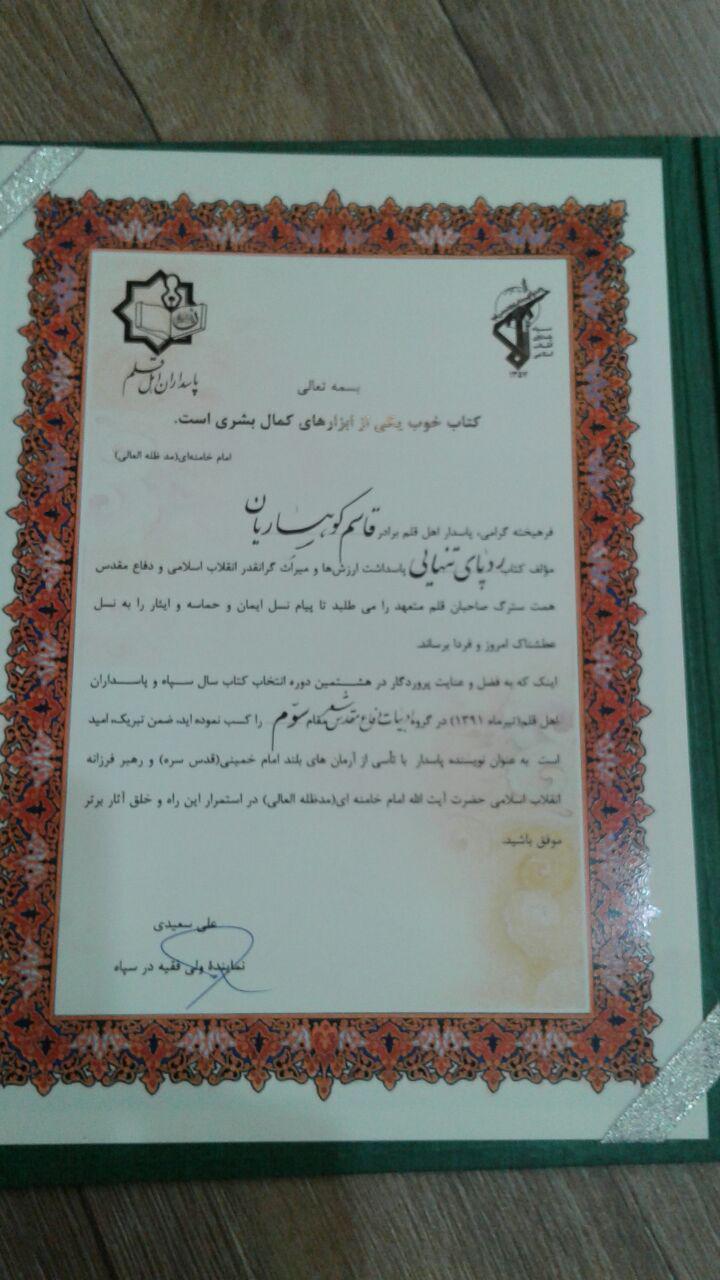 پاسداران اهل قلم
سپاه
پاسداران
انقلاب
اسلامی
۱۳۵۷
بسمه تعالی
کتاب خوب یکی از ابزارهای کمال بشری است.
امام خامنه‌ای(مد ظله العالی)
فرهیخته گرامی، پاسدار اهل قلم برادر قاسم کوهساریان
مؤلف کتاب ردپای تنهایی پاسداشت ارزش‌ها و میراث گرانقدر انقلاب اسلامی و دفاع مقدس
همت سترگ صاحبان قلم متعهد را می طلبد تا پیام نسل ایمان و حماسه و ایثار را به نسل
عطشناک امروز و فردا برساند.
اینک که به فضل و عنایت پروردگار در هشتمین دوره انتخاب کتاب سال سپاه و پاسداران
اهل قلم(تیرماه ۱۳۹۱) در گروه ادبیات دفاع مقدس شعر مقام سوّم را کسب نموده اید، ضمن تبریک، امید
است به عنوان نویسنده پاسدار با تأسی از آرمان های بلند امام خمینی(قدس سره) و رهبر فرزانه
انقلاب اسلامی حضرت آیت الله امام خامنه ای(مدظله العالی) در استمرار این راه و خلق آثار برتر
موفق باشید.
علی سعیدی
نمایندهٔ ولی فقیه در سپاه